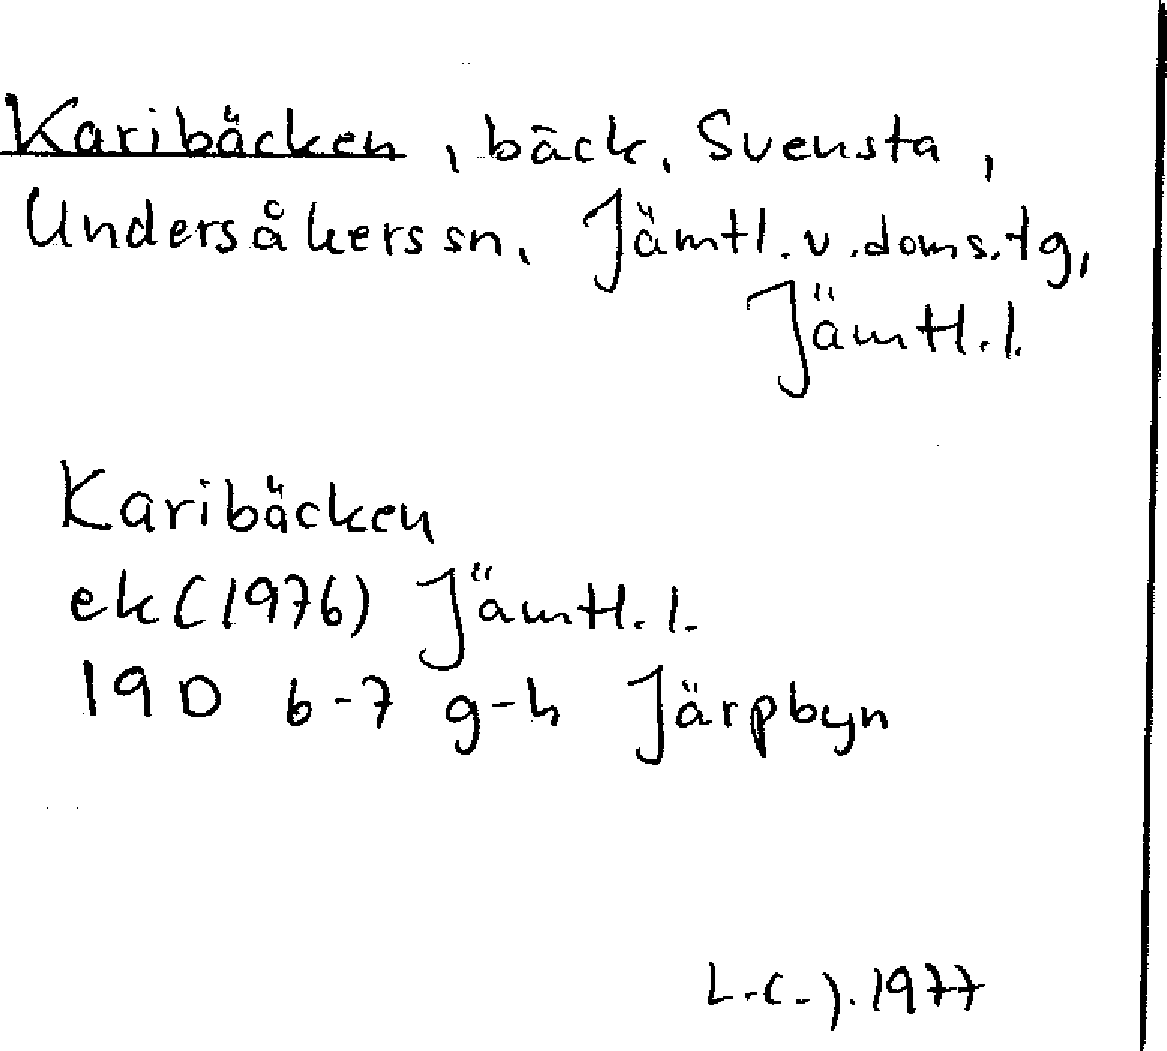 Karibäcken, bäck, Svensta,
Undersåkers sn, Jämtl. v. doms. tg,
Jämtl. l.
Karibäcken
ek (1976) Jämtl. l.
19 D 6-7 g-h Järpbyn
L.-C. J. 1977